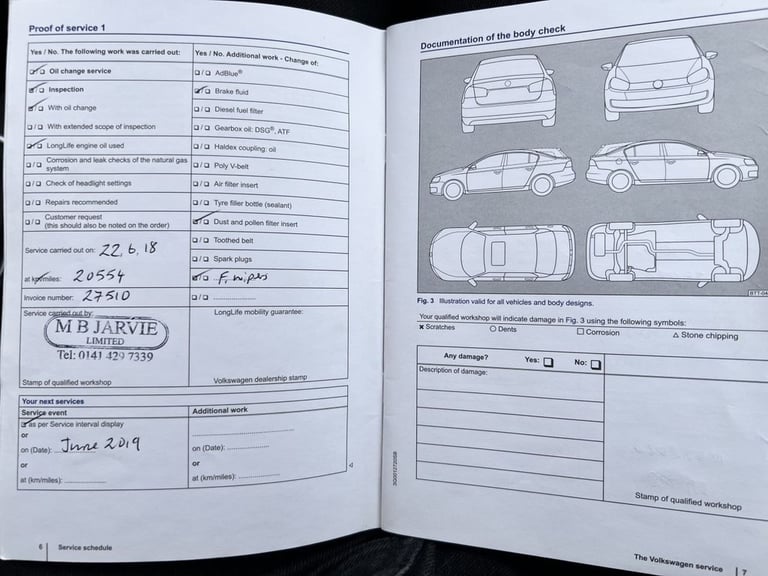 Proof of service 1
Yes / No. The following work was carried out:
Oil change service
Inspection
With oil change
With extended scope of inspection
LongLife engine oil used
Corrosion and leak checks of the natural gas
system
Check of headlight settings
Repairs recommended
Customer request
(this should also be noted on the order)
Service carried out on: 22.6.18
at km/miles: 20554
Invoice number: 27510
Service carried out by:
M B JARVIE
LIMITED
Tel: 0141 429 7339
Stamp of qualified workshop
Yes / No. Additional work - Change of:
AdBlue®
Brake fluid
Diesel fuel filter
Gearbox oil: DSG®, ATF
Haldex coupling: oil
Poly V-belt
Air filter insert
Tyre filler bottle (sealant)
Dust and pollen filter insert
Toothed belt
Spark plugs
F. wipes
LongLife mobility guarantee:
Volkswagen dealership stamp
Your next services
Service event
as per Service interval display
or
on (Date): June 2019
or
at (km/miles):
Additional work
on (Date):
or
at (km/miles):
6 Service schedule
Documentation of the body check
Fig. 3 Illustration valid for all vehicles and body designs.
Your qualified workshop will indicate damage in Fig. 3 using the following symbols:
× Scratches ○ Dents □ Corrosion △ Stone chipping
Any damage? Yes: No:
Description of damage:
Stamp of qualified workshop
The Volkswagen service 7